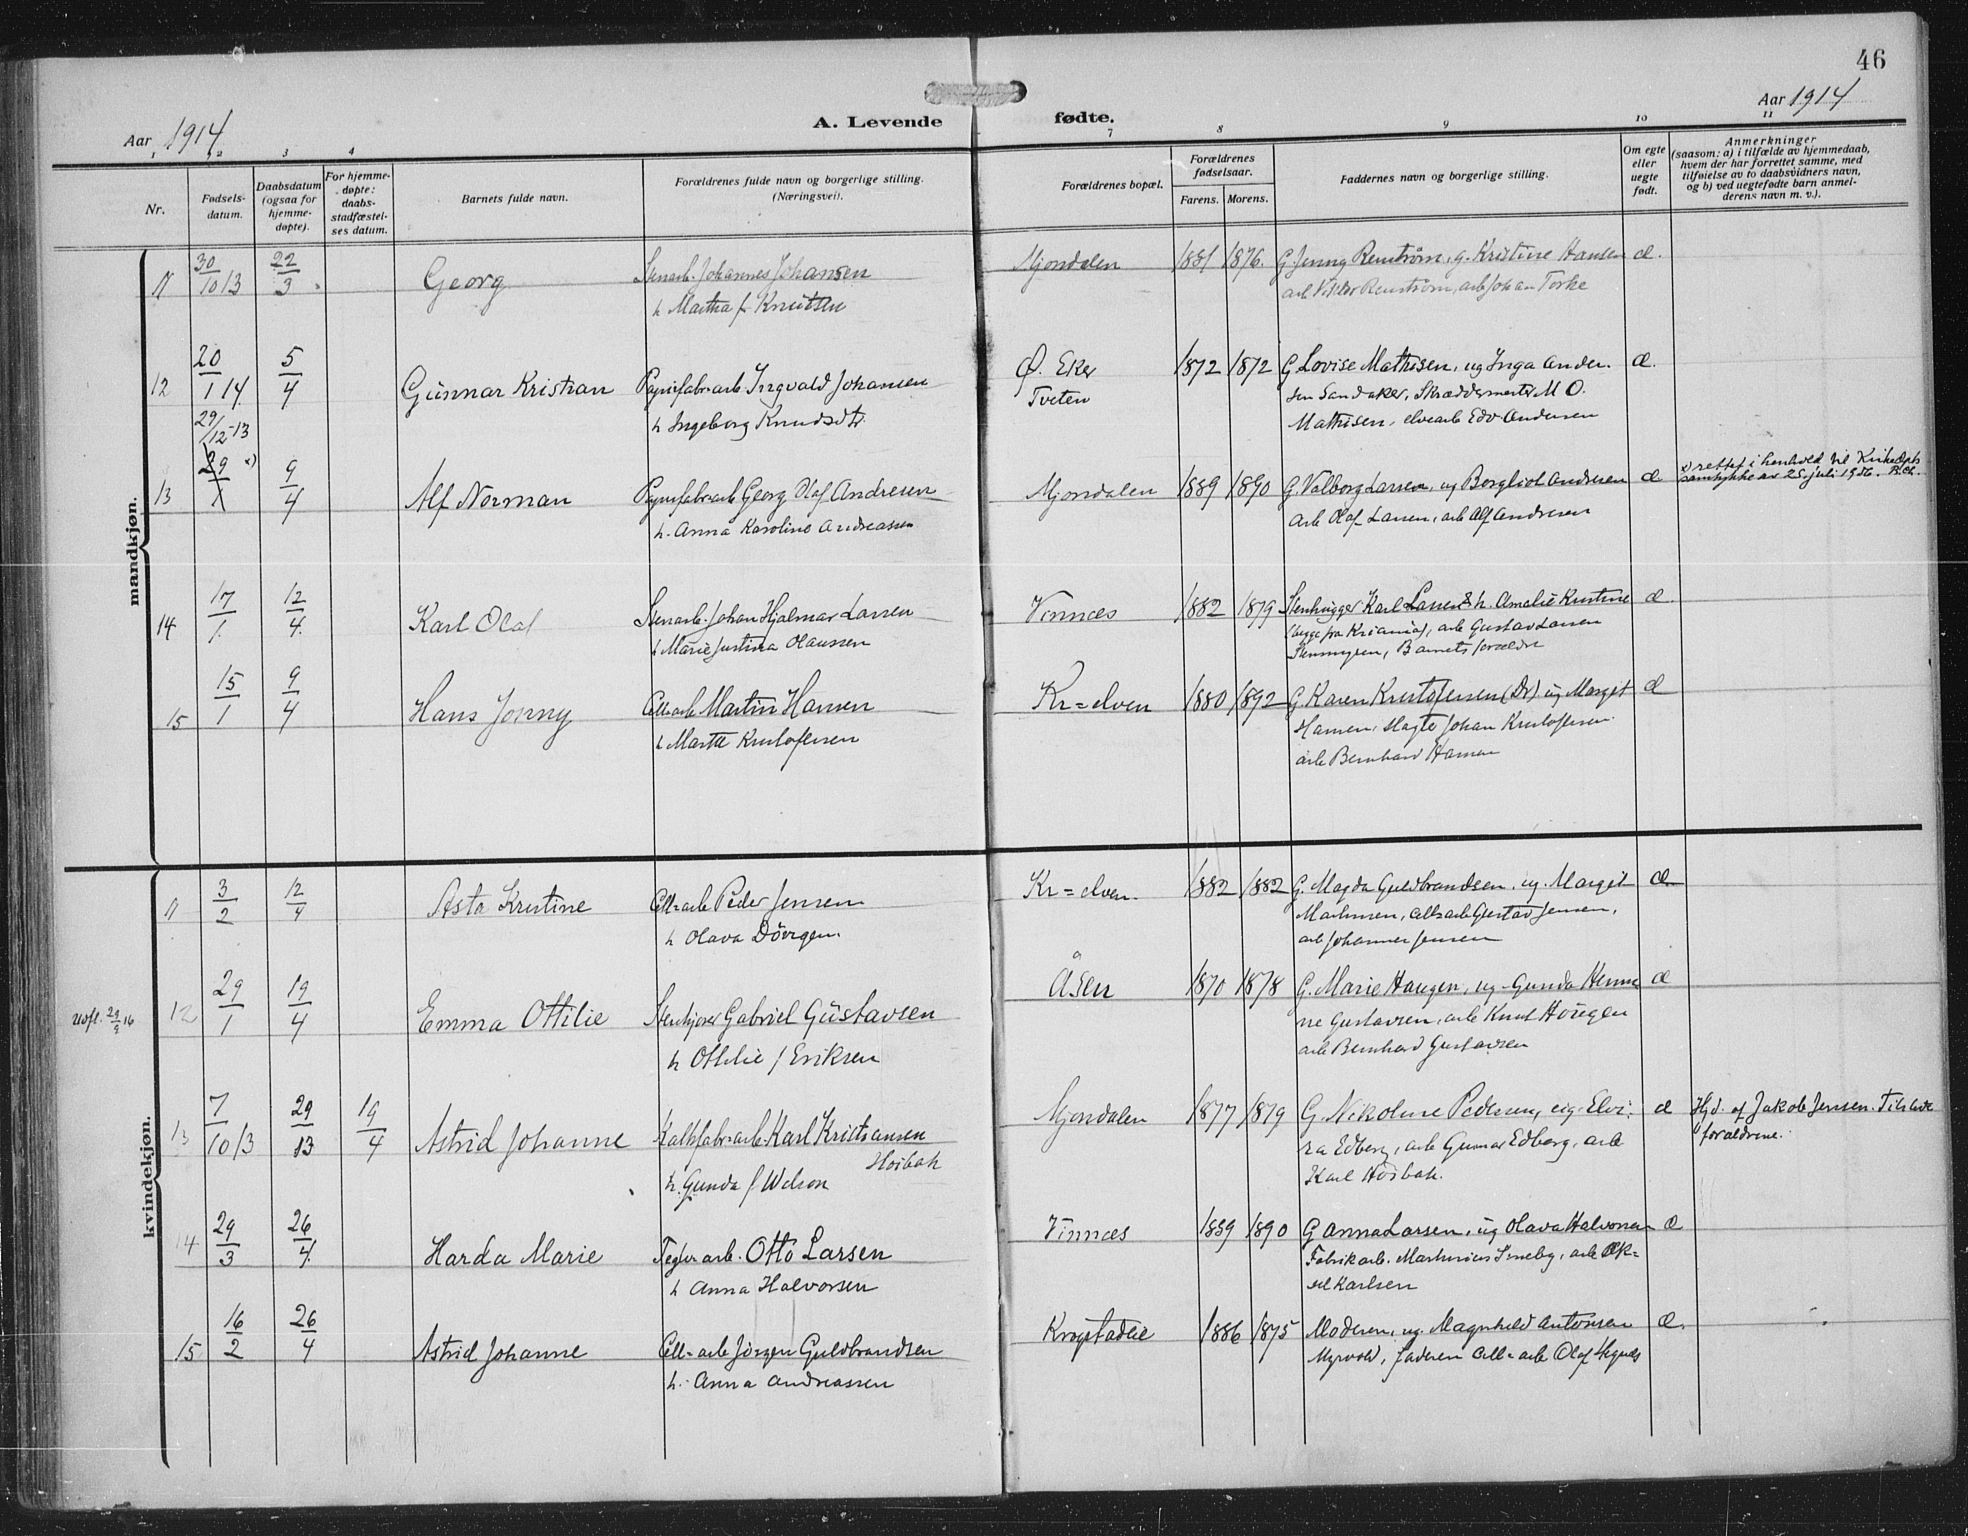 46
Aar 1914
A. Levende fødte.
Aar 1914
1 2 3 4 7 8 9 10 11
Nr.
Fødsels-
datum.
Daabsdatum
(ogsaa for
hjemme-
døpte).
For hjemme-
døpte:
daabs-
stadfæstel-
ses datum.
Barnets fulde navn.
Forældrenes fulde navn og borgerlige stilling.
(Næringsvei).
Forældrenes bopæl.
Forældrenes
fødselsaar.
Farens. Morens.
Faddernes navn og borgerlige stilling.
Om egte
eller
uegte
født.
Anmerkninger
(saasom: a) i tilfælde av hjemmedaab,
hvem der har forrettet samme, med
tilføielse av to daabsvidners navn,
og b) ved uegtefødte barn anmel-
derens navn m. v.).
mandkjøn.
11 30/10 13 22/3 Georg Stenarb. Johannes Johansen Mjøndalen 1881 1876 G. Jenny Renstrøm, g. Kristine Hansen æ.
h Martha f Knutsen arb Viktor Renstrøm, arb Johan Torke
12 20/1 14 5/4 Gunnar Kristian Papirfabr-arb Ingvald Johansen Ø. Eker 1872 1872 G Lovise Mathisen, ug Inga Ander- æ.
h Ingeborg Knudsdtr. Tveten sen Sandaker, Skræddermester M O.
Mathisen, elvearb Edv. Andersen
29/12-13
13 29/1 x) 9/4 Alf Norman Papirfabr-arb Georg Olaf Andresen Mjøndalen 1889 1890 G. Valborg Larsen, ug Borgliot Andresen æ x) rettet i henhold til Kirkedepts
h. Anna Karoline Andreassen arb Olaf Larsen, arb Alf Andresen samtykke av 25 juli 1936.
14 17/1. 12/4. Karl Olaf Stenarb. Johan Hjalmar Larsen Vinnæs 1882 1879 Stenhugger Karl Larsen & h. Amalie Kristine æ.
h Marie Justina Olaussen (begge fra Kristiania), arb Gustav Larsen
Stenmyren, Barnets forældre
15 15/1 9/4 Hans Jonny Cell-arb Martin Hansen Kr=elven 1880 1892 G. Karen Kristofersen (Dr) ug Margit æ
h Marthe Kristofersen Hansen, slagte Johan Kristofersen
arb Bernhard Hansen
kvindekjøn.
11 3/2 12/4 Asta Kristine Cell-arb Peder Jensen Kr=elven. 1882 1882 G. Magda Guldbrandsen, ug. Margit æ.
h Olava Dövigen. Martinsen, cells arb Gustav Jensen,
arb Johannes Jensen
12 29/1 19/4 Emma Ottilie Stenkjører Gabriel Gustavsen Åsen 1870 1878 G. Marie Haugen, ug Gunda Henne æ
h Ottilie f Eriksen ne Gustavsen, arb Knut Hougen
arb Bernhard Gustavsen
13 7/10 13 29/13 19/4 Astrid Johanne Kalkfabr-arb. Karl Kristiansen Mjøndalen 1877 1879 G. Nikoline Pedersen, ug. Elvi- æ Hjd. af Jakob Jensen. Tilstede
Hoibak ra Edberg, arb Gunnar Edberg, arb forældrene.
h. Gunda f Welson Karl Höibak.
14 29/3 26/4. Harda Marie Teglv-arb. Otto Larsen Vinnæs 1889 1890 G Anna Larsen, ug Olava Halvorsen æ
h Anna Halvorsen Fabrikarb. Martinius Smeby, arb Ak=
sel Karlsen
15 16/2 26/4 Astrid Johanne Cell=arb Jörgen Guldbrandsen Krogstadlie 1886 1875 Moderen, ug. Magnhild Antonsen æ.
h. Anna Andreassen Myrvold, faderen cell=arb Olaf